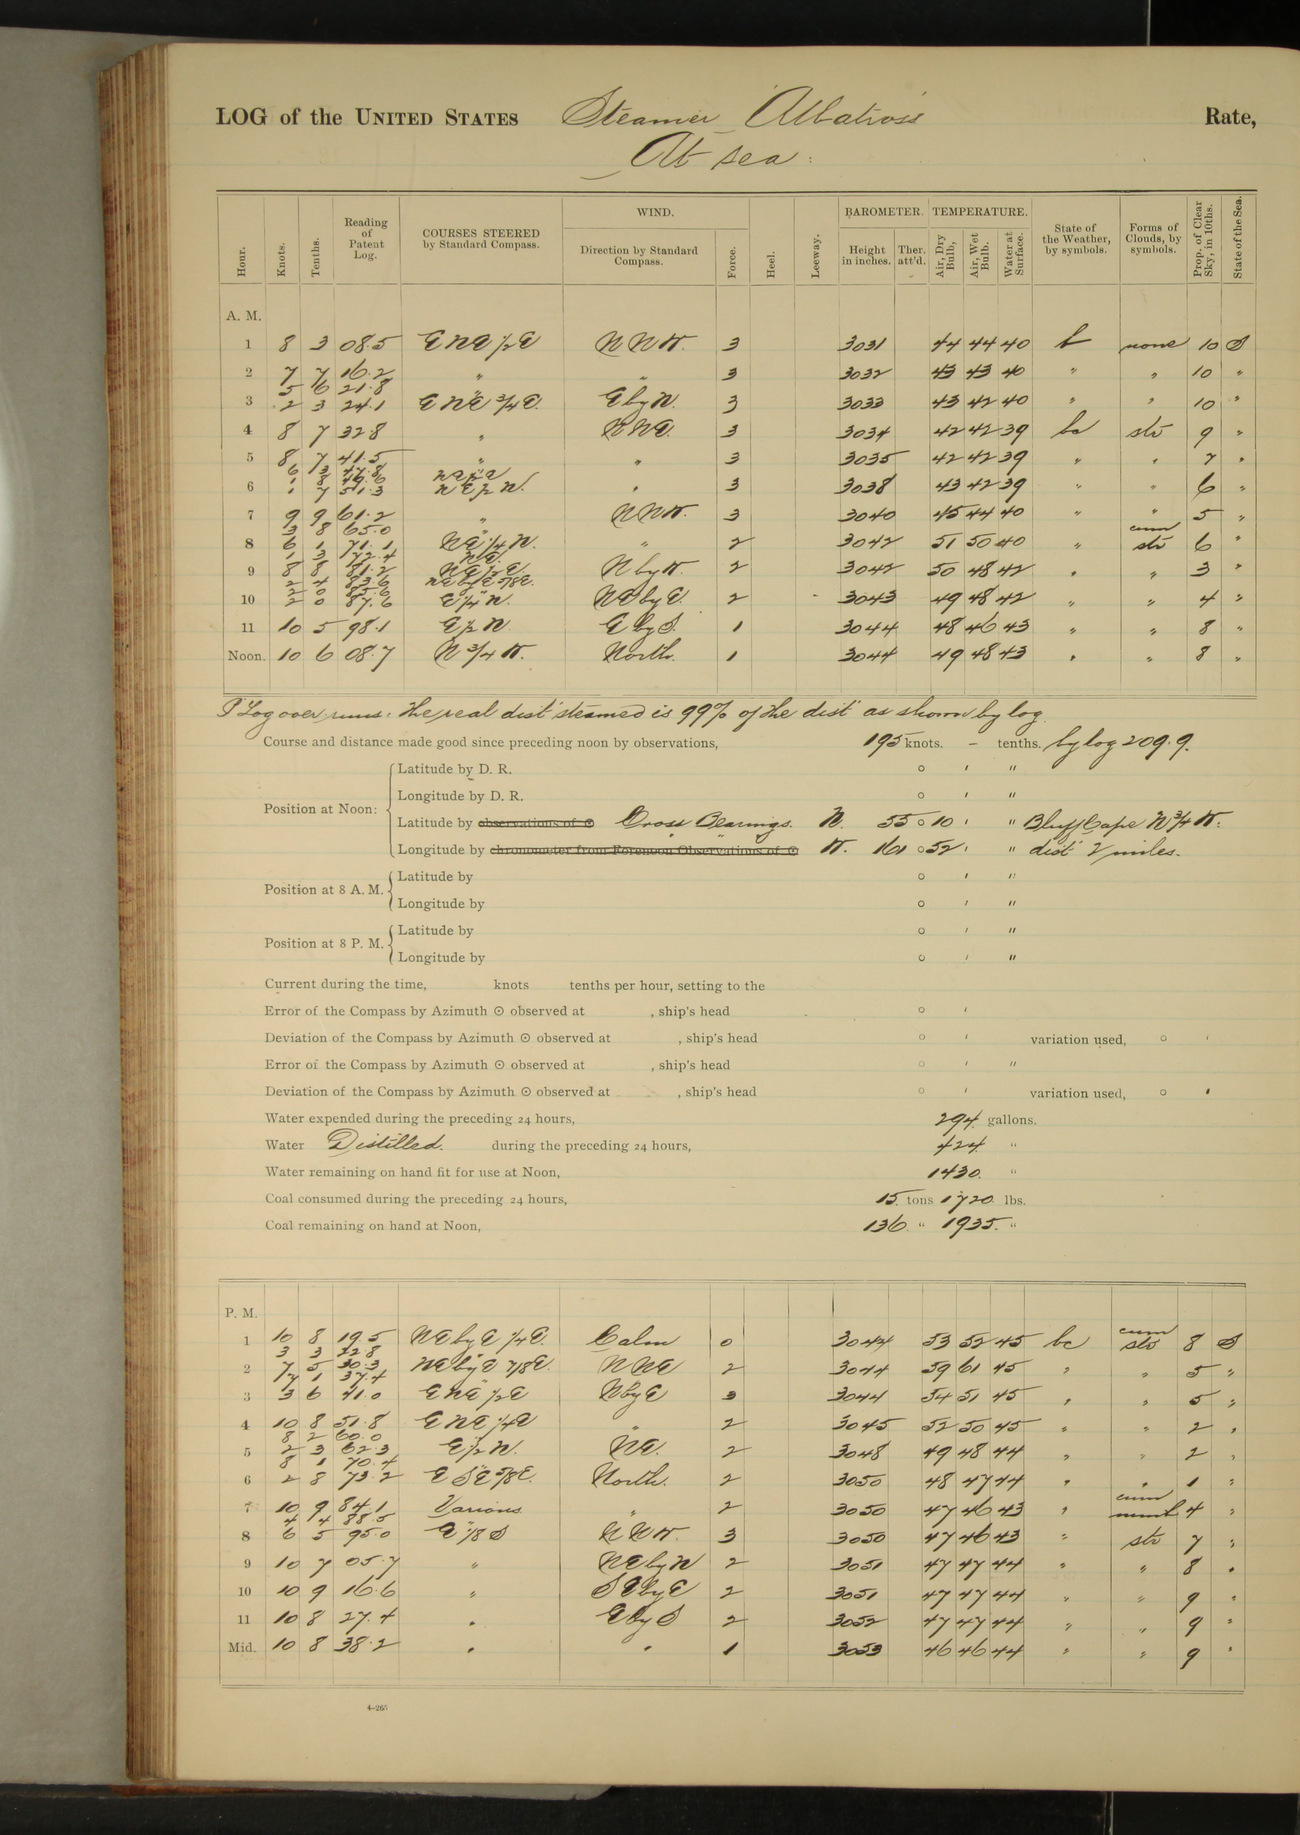 LOG of the UNITED STATES Steamer "Albatross" Rate,
At sea:
Hour. Knots. Tenths. Reading of Patent Log. COURSES STEERED by Standard Compass. WIND. Direction by Standard Compass. Force. Heel. Leeway. BAROMETER. Height in inches. Ther. att'd. TEMPERATURE. Air, Dry Bulb, Air, Wet Bulb. Water at Surface. State of the Weather, by symbols. Forms of Clouds, by symbols. Prop. of Clear Sky, in 10ths. State of the Sea.
A. M.
1 8 3 08.5 ENE 1/2 E NNW. 3 3031 44 44 40 b none 10 S
2 7 7 16.2 " " 3 3032 43 43 40 " " 10 "
5 6 21.8 "
3 2 3 24.1 ENE 3/4 E. E by N. 3 3033 43 42 40 " " 10 "
4 8 7 32.8 " NNE. 3 3034 42 42 39 bc str 9 "
5 8 7 41.5 " " 3 3035 42 42 39 " " 7 "
6 3 47.8
1 8 49.6
6 1 7 51.3 NE 1/2 N. " 3 3038 43 42 39 " " 6 "
7 9 9 61.2 " NNW. 3 3040 45 44 40 " " 5 "
3 8 65.0 "
8 6 1 71.1 NE 1/4 N. " 2 3042 51 50 40 " cum str 6 "
1 3 72.4 NE.
9 8 8 81.2 NE 1/2 E N by W. 2 3042 50 48 42 " " 3 "
2 4 83.6 NE by E 7/8 E.
2 0 85.6 "
10 2 0 87.6 E 1/4 N. NE by E. 2 3043 49 48 42 " " 4 "
11 10 5 98.1 E 1/2 N. E by S. 1 3044 48 46 43 " " 8 "
Noon. 10 6 08.7 N 3/4 W. North. 1 3044 49 48 43 " " 8 "
P Log over runs: The real dist steamed is 99% of the dist as shown by log.
Course and distance made good since preceding noon by observations, 195 knots. – tenths. by log 209.9.
Latitude by D. R. ° ' "
Longitude by D. R. ° ' "
Position at Noon:
Latitude by observations of ☉ Cross Bearings. N. 55 ° 10 ' " Bluff Cape N 3/4 W.
Longitude by chronometer from Forenoon Observations of ☉ " W. 161 ° 52 ' " dist 2 miles.
Position at 8 A. M. Latitude by ° ' "
Longitude by ° ' "
Position at 8 P. M. Latitude by ° ' "
Longitude by ° ' "
Current during the time, knots tenths per hour, setting to the
Error of the Compass by Azimuth ☉ observed at , ship's head ° '
Deviation of the Compass by Azimuth ☉ observed at , ship's head ° ' variation used, ° '
Error of the Compass by Azimuth ☉ observed at , ship's head ° ' "
Deviation of the Compass by Azimuth ☉ observed at , ship's head ° ' variation used, ° '
Water expended during the preceding 24 hours, 294 gallons.
Water Distilled. during the preceding 24 hours, 424 "
Water remaining on hand fit for use at Noon, 1430. "
Coal consumed during the preceding 24 hours, 15. tons 1720 lbs.
Coal remaining on hand at Noon, 136. " 1935. "
P. M.
1 10 8 19.5 NE by E 1/4 E. Calm 0 3044 53 52 45 bc cum str 8 S
3 3 22.8 "
2 7 5 30.3 NE by E 7/8 E. NNE 2 3044 59 61 45 " " 5 "
7 1 37.4 "
3 3 6 41.0 ENE 1/2 E N by E 3 3044 54 51 45 " " 5 "
4 10 8 51.8 ENE 1/4 E " 2 3045 52 50 45 " " 2 "
8 2 60.0 "
5 2 3 62.3 E 1/2 N. NE. 2 3048 49 48 44 " " 2 "
8 1 70.4 "
6 2 8 73.2 ESE 5/8 E. North. 2 3050 48 47 44 " " 1 "
7 10 9 84.1 Various " 2 3050 47 46 43 " cum nimb 4 "
4 4 88.5 "
8 6 5 95.0 E 1/8 S NNW. 3 3050 47 46 43 " str 7 "
9 10 7 05.7 " NE by N 2 3051 47 47 44 " " 8 "
10 10 9 16.6 " SE by E 2 3051 47 47 44 " " 9 "
11 10 8 27.4 " E by S 2 3052 47 47 44 " " 9 "
Mid. 10 8 38.2 " " 1 3053 46 46 44 " " 9 "
4–265